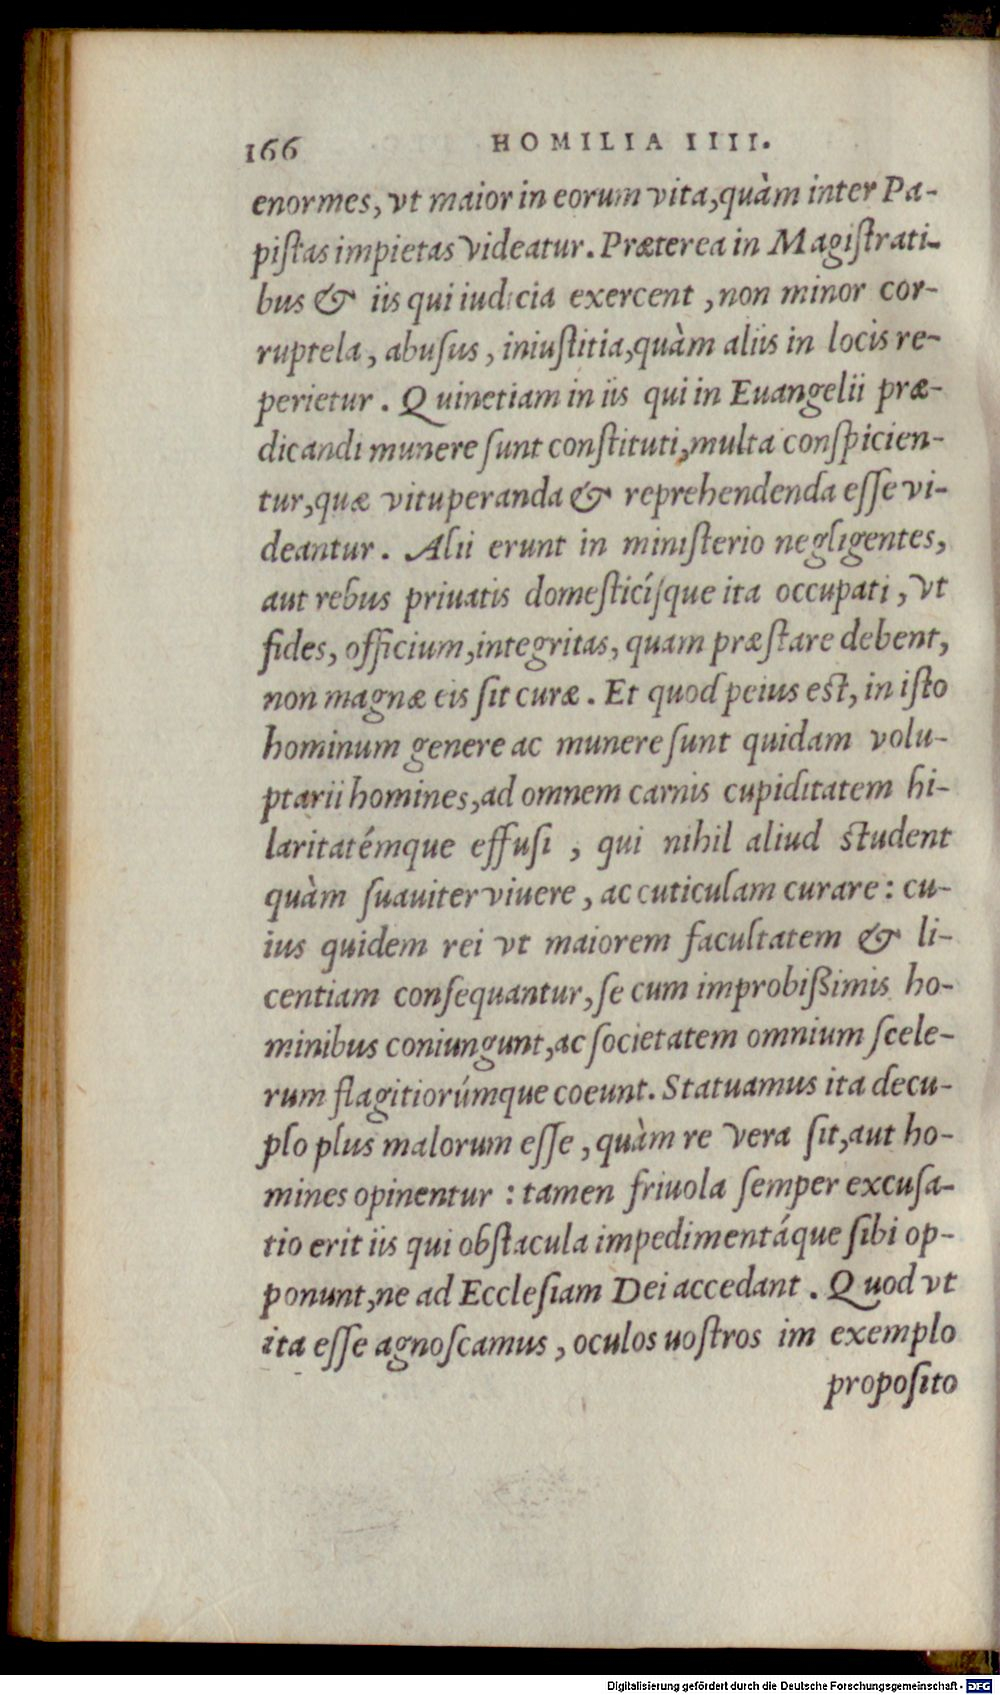 166 HOMILIA IIII.
enormes, vt maior in eorum vita, quàm inter Pa-
piſtas impietas videatur. Præterea in Magiſtrati-
bus & iis qui iudicia exercent, non minor cor-
ruptela, abuſus, iniuſtitia, quàm aliis in locis re-
perietur. Quinetiam in iis qui in Euangelii præ-
dicandi munere ſunt conſtituti, multa conſpicien-
tur, quæ vituperanda & reprehendenda eſſe vi-
deantur. Alii erunt in miniſterio negligentes,
aut rebus priuatis domeſticíſque ita occupati, vt
fides, officium, integritas, quam præſtare debent,
non magnæ eis ſit curæ. Et quod peius eſt, in iſto
hominum genere ac munere ſunt quidam volu-
ptarii homines, ad omnem carnis cupiditatem hi-
laritatémque effuſi, qui nihil aliud ſtudent
quàm ſuauiter viuere, ac cuticulam curare: cu-
ius quidem rei vt maiorem facultatem & li-
centiam conſequantur, ſe cum improbißimis ho-
minibus coniungunt, ac ſocietatem omnium ſcele-
rum flagitiorúmque coeunt. Statuamus ita decu-
plo plus malorum eſſe, quàm re vera ſit, aut ho-
mines opinentur: tamen friuola ſemper excuſa-
tio erit iis qui obſtacula impedimentáque ſibi op-
ponunt, ne ad Eccleſiam Dei accedant. Quod vt
ita eſſe agnoſcamus, oculos uoſtros im exemplo
propoſito
Digitalisierung gefördert durch die Deutsche Forschungsgemeinschaft - DFG